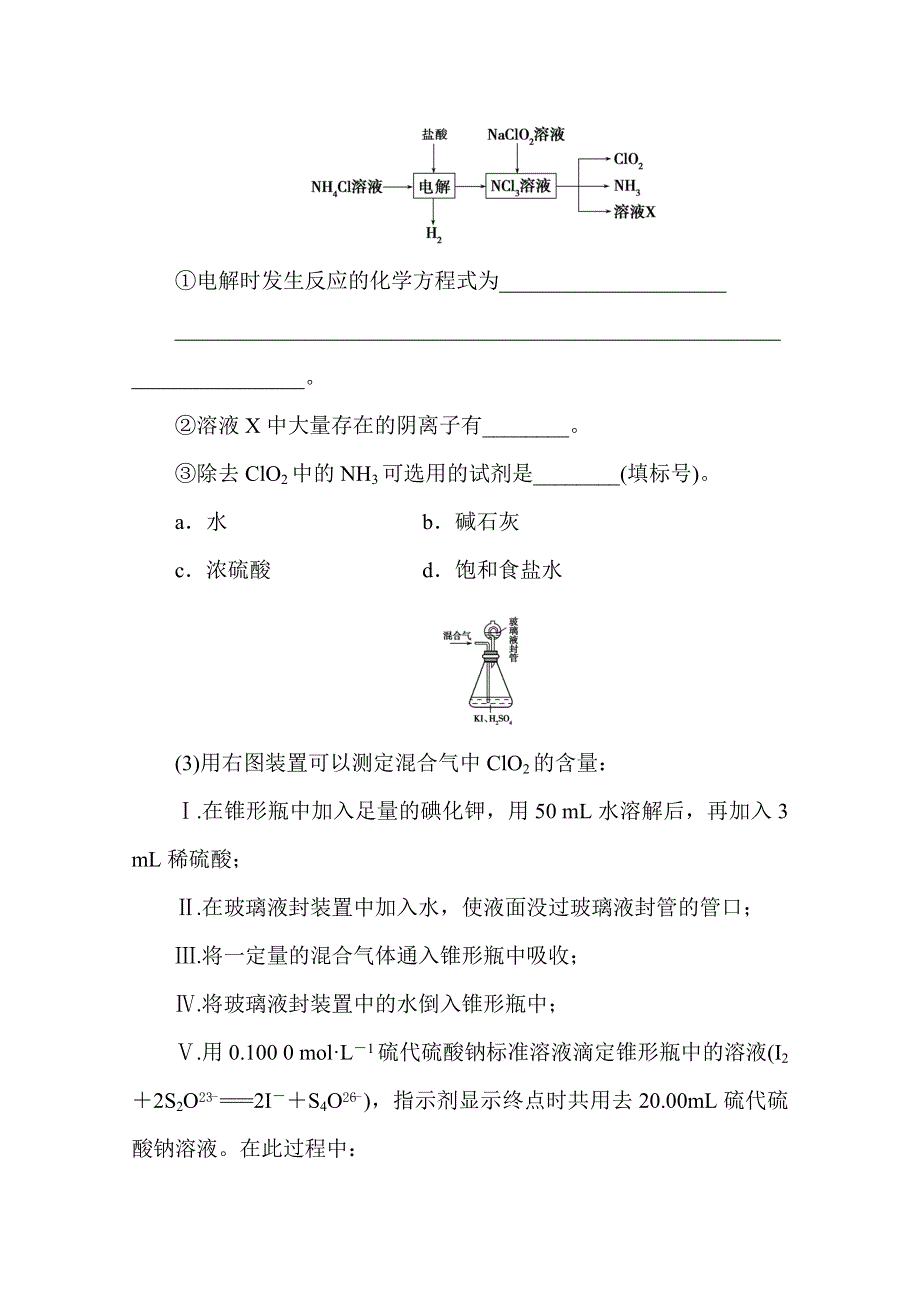 盐酸 NaClO₂溶液
ClO₂
NH₄Cl溶液 电解 NCl₃溶液 NH₃
溶液X
H₂
①电解时发生反应的化学方程式为_____________________
________________________________________________________
________________。
②溶液 X 中大量存在的阴离子有________。
③除去 ClO₂中的 NH₃可选用的试剂是________(填标号)。
a．水 b．碱石灰
c．浓硫酸 d．饱和食盐水
混合气 玻璃液封管
KI、H₂SO₄
(3)用右图装置可以测定混合气中 ClO₂的含量：
Ⅰ.在锥形瓶中加入足量的碘化钾，用 50 mL 水溶解后，再加入 3
mL 稀硫酸；
Ⅱ.在玻璃液封装置中加入水，使液面没过玻璃液封管的管口；
Ⅲ.将一定量的混合气体通入锥形瓶中吸收；
Ⅳ.将玻璃液封装置中的水倒入锥形瓶中；
Ⅴ.用 0.100 0 mol·L⁻¹硫代硫酸钠标准溶液滴定锥形瓶中的溶液(I₂
＋2S₂O²³⁻===2I⁻＋S₄O²⁶⁻)，指示剂显示终点时共用去 20.00mL 硫代硫
酸钠溶液。在此过程中：